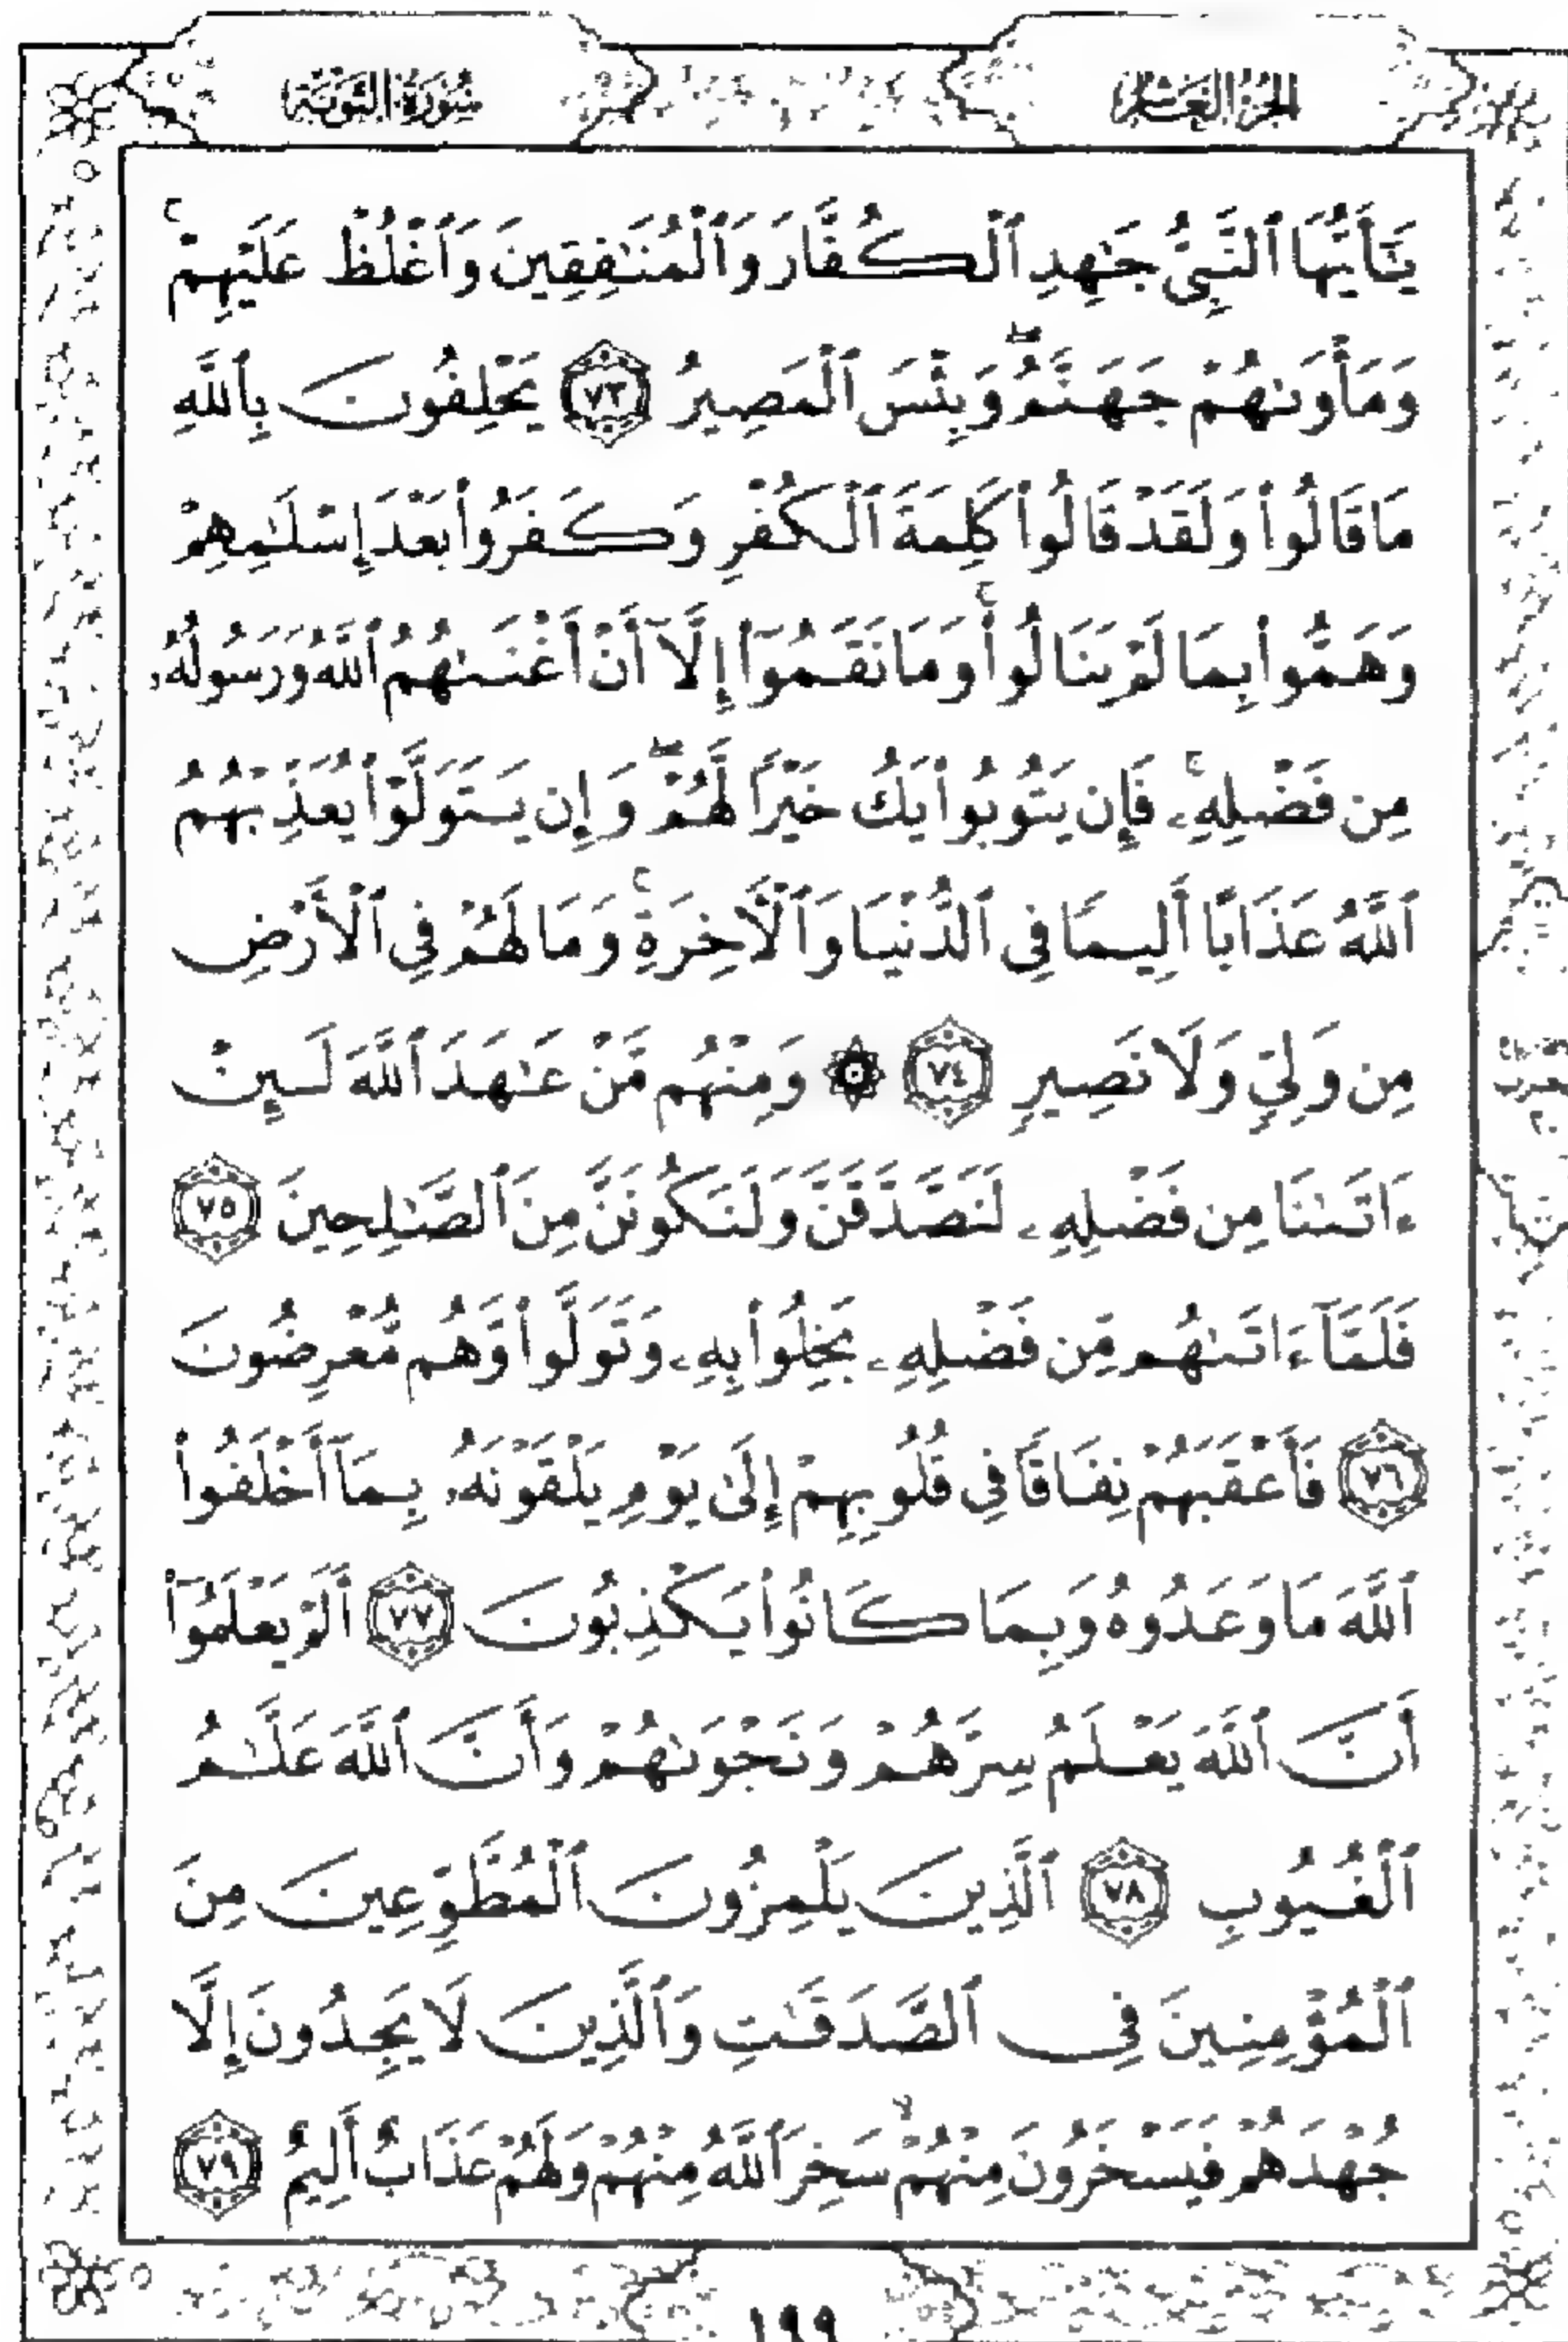 الجزء العاشر
سورة التوبة
يَـٰٓأَيُّهَا ٱلنَّبِىُّ جَـٰهِدِ ٱلْكُفَّارَ وَٱلْمُنَـٰفِقِينَ وَٱغْلُظْ عَلَيْهِمْ ۚ
وَمَأْوَىٰهُمْ جَهَنَّمُ ۖ وَبِئْسَ ٱلْمَصِيرُ ٧٣ يَحْلِفُونَ بِٱللَّهِ
مَا قَالُوا۟ وَلَقَدْ قَالُوا۟ كَلِمَةَ ٱلْكُفْرِ وَكَفَرُوا۟ بَعْدَ إِسْلَـٰمِهِمْ
وَهَمُّوا۟ بِمَا لَمْ يَنَالُوا۟ ۚ وَمَا نَقَمُوٓا۟ إِلَّآ أَنْ أَغْنَىٰهُمُ ٱللَّهُ وَرَسُولُهُۥ
مِن فَضْلِهِۦ ۚ فَإِن يَتُوبُوا۟ يَكُ خَيْرًا لَّهُمْ ۖ وَإِن يَتَوَلَّوْا۟ يُعَذِّبْهُمُ
ٱللَّهُ عَذَابًا أَلِيمًا فِى ٱلدُّنْيَا وَٱلْـَٔاخِرَةِ ۚ وَمَا لَهُمْ فِى ٱلْأَرْضِ
مِن وَلِىٍّ وَلَا نَصِيرٍ ٧٤ ۞ وَمِنْهُم مَّنْ عَـٰهَدَ ٱللَّهَ لَئِنْ
ءَاتَىٰنَا مِن فَضْلِهِۦ لَنَصَّدَّقَنَّ وَلَنَكُونَنَّ مِنَ ٱلصَّـٰلِحِينَ ٧٥
فَلَمَّآ ءَاتَىٰهُم مِّن فَضْلِهِۦ بَخِلُوا۟ بِهِۦ وَتَوَلَّوا۟ وَّهُم مُّعْرِضُونَ
٧٦ فَأَعْقَبَهُمْ نِفَاقًا فِى قُلُوبِهِمْ إِلَىٰ يَوْمِ يَلْقَوْنَهُۥ بِمَآ أَخْلَفُوا۟
ٱللَّهَ مَا وَعَدُوهُ وَبِمَا كَانُوا۟ يَكْذِبُونَ ٧٧ أَلَمْ يَعْلَمُوٓا۟
أَنَّ ٱللَّهَ يَعْلَمُ سِرَّهُمْ وَنَجْوَىٰهُمْ وَأَنَّ ٱللَّهَ عَلَّـٰمُ
ٱلْغُيُوبِ ٧٨ ٱلَّذِينَ يَلْمِزُونَ ٱلْمُطَّوِّعِينَ مِنَ
ٱلْمُؤْمِنِينَ فِى ٱلصَّدَقَـٰتِ وَٱلَّذِينَ لَا يَجِدُونَ إِلَّا
جُهْدَهُمْ فَيَسْخَرُونَ مِنْهُمْ ۙ سَخِرَ ٱللَّهُ مِنْهُمْ وَلَهُمْ عَذَابٌ أَلِيمٌ ٧٩
١٩٩